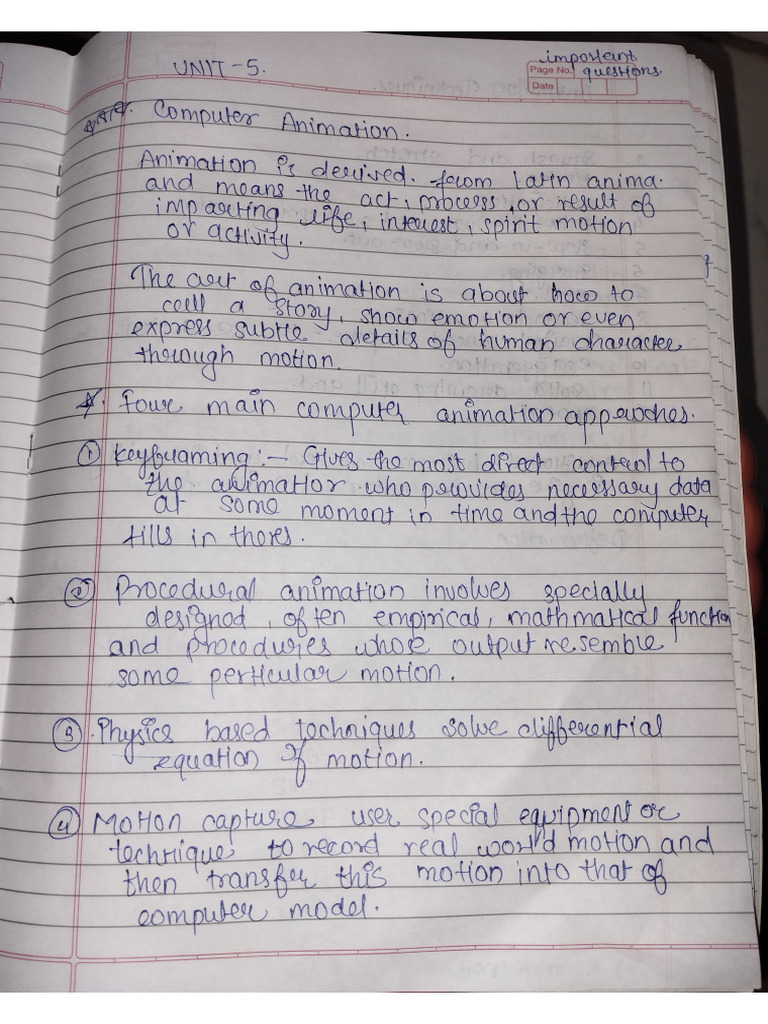 important
UNIT-5.
Page No. questions.
Date
Computer Animation.
Animation is derived. from Latin anima.
and means the act, process, or result of
imparting life, interest, spirit motion
or activity.
The art of animation is about how to
cell a story, show emotion or even
express subtle details of human character
through motion.
Four main computer animation approches.
① Keyframing :- Gives the most direct control to
the animatior who provides necessary data
at some moment in time and the computer
fills in theres.
② Procedural animation involves specially
designod, often empirical, mathmatical function
and procedures whose output resemble
some perticular motion.
③ Physics based techniques solve differential
equation of motion.
④ Motion capture user special equipment or
technique to record real world motion and
then transfer this motion into that of
computer model.